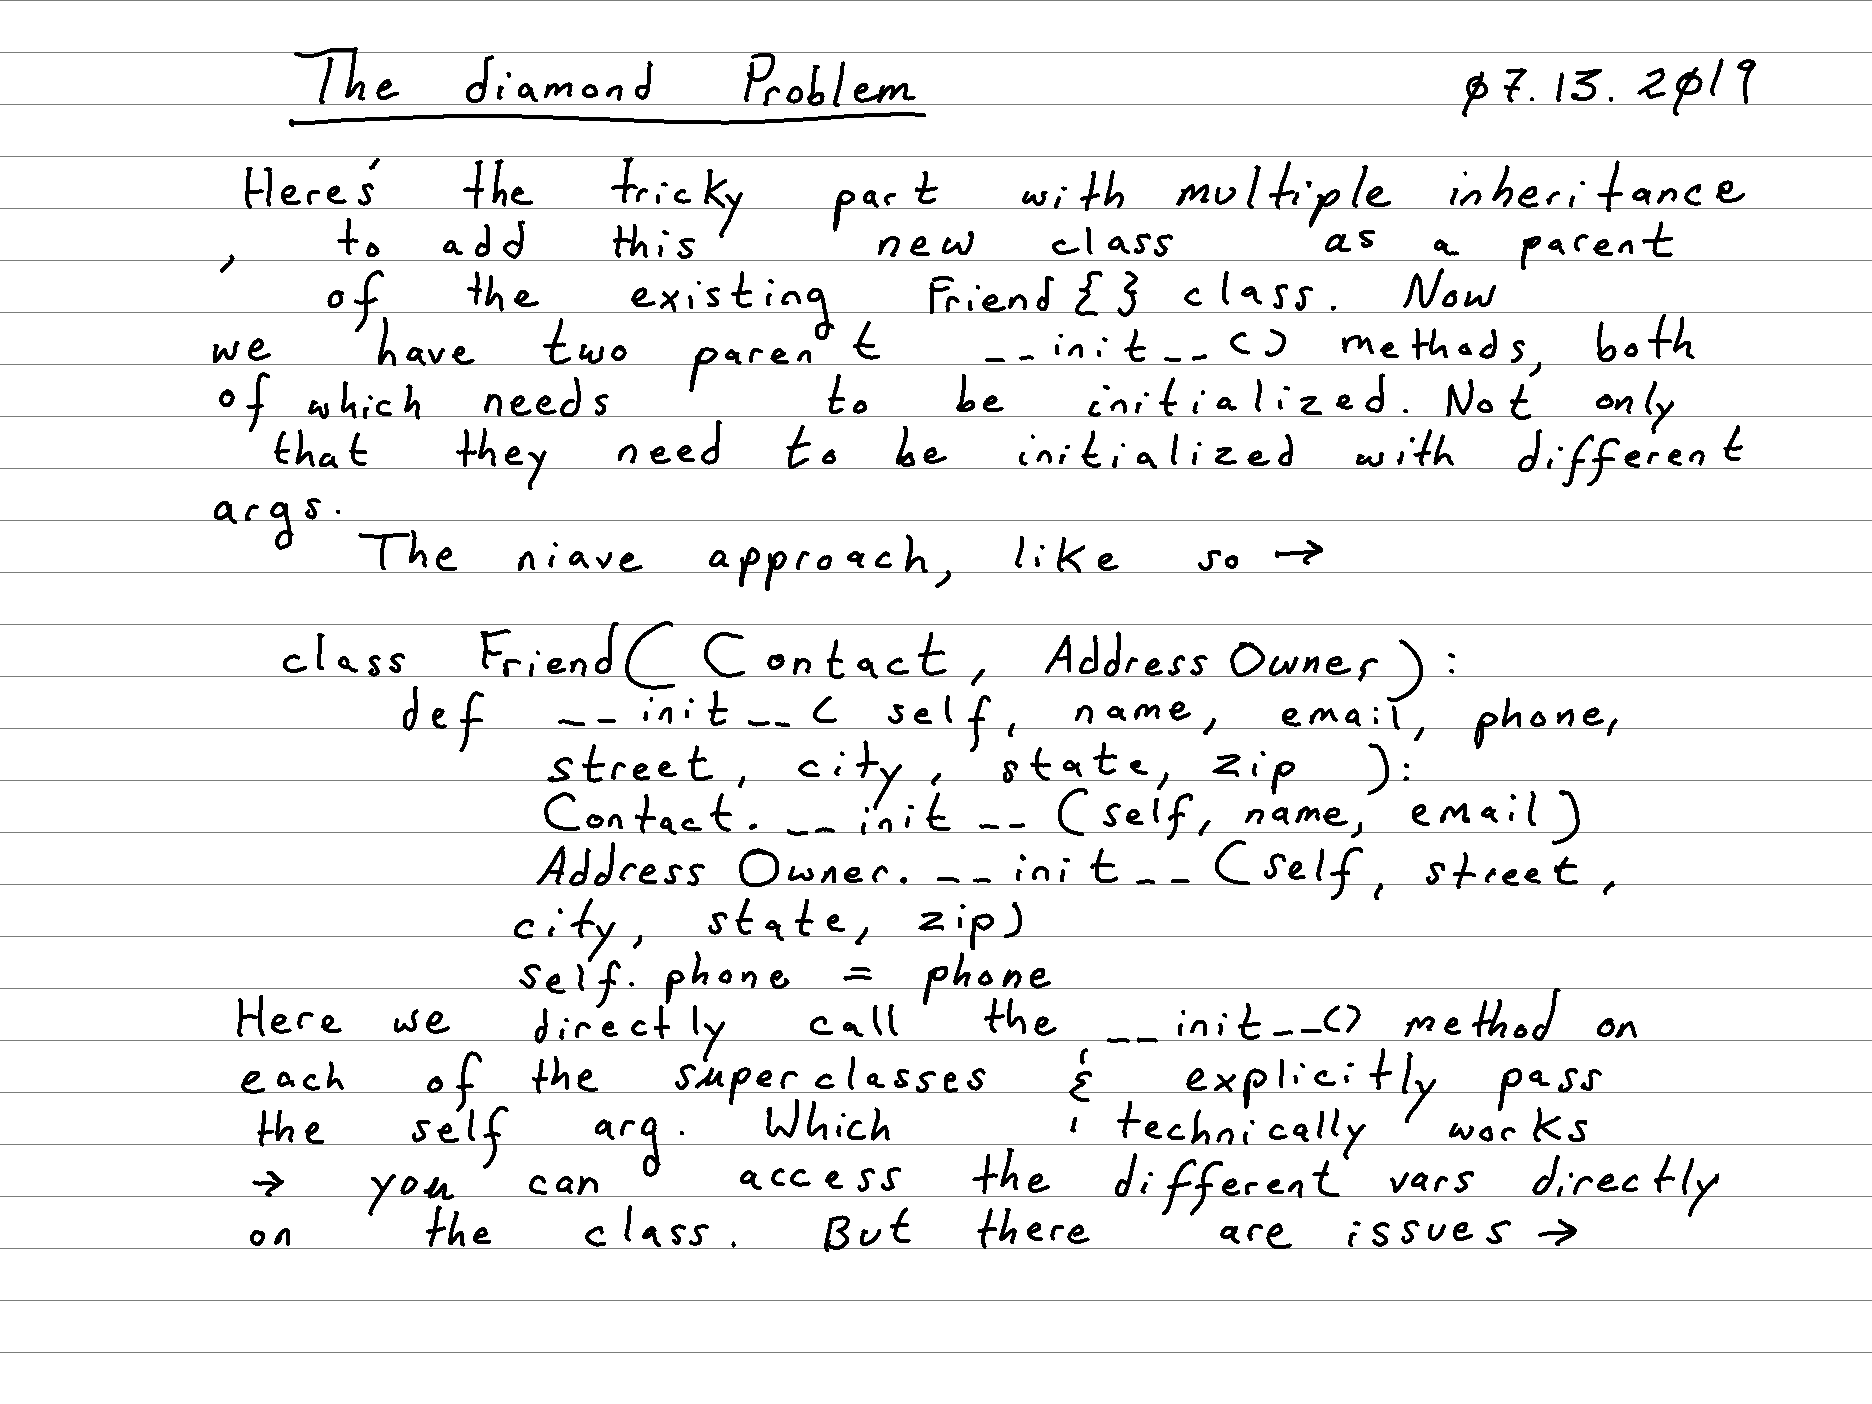 The diamond Problem 07.13.2019
Here's the tricky part with multiple inheritance
, to add this new class as a parent
of the existing Friend{} class. Now
we have two parent __init__() methods, both
of which needs to be initialized. Not only
that they need to be initialized with different
args.
The niave approach, like so →
class Friend(Contact, AddressOwner):
def __init__( self, name, email, phone,
street, city, state, zip ):
Contact.__init__(self, name, email)
AddressOwner.__init__(self, street,
city, state, zip)
self.phone = phone
Here we directly call the __init__() method on
each of the superclasses & explicitly pass
the self arg. Which technically works
→ you can access the different vars directly
on the class. But there are issues →